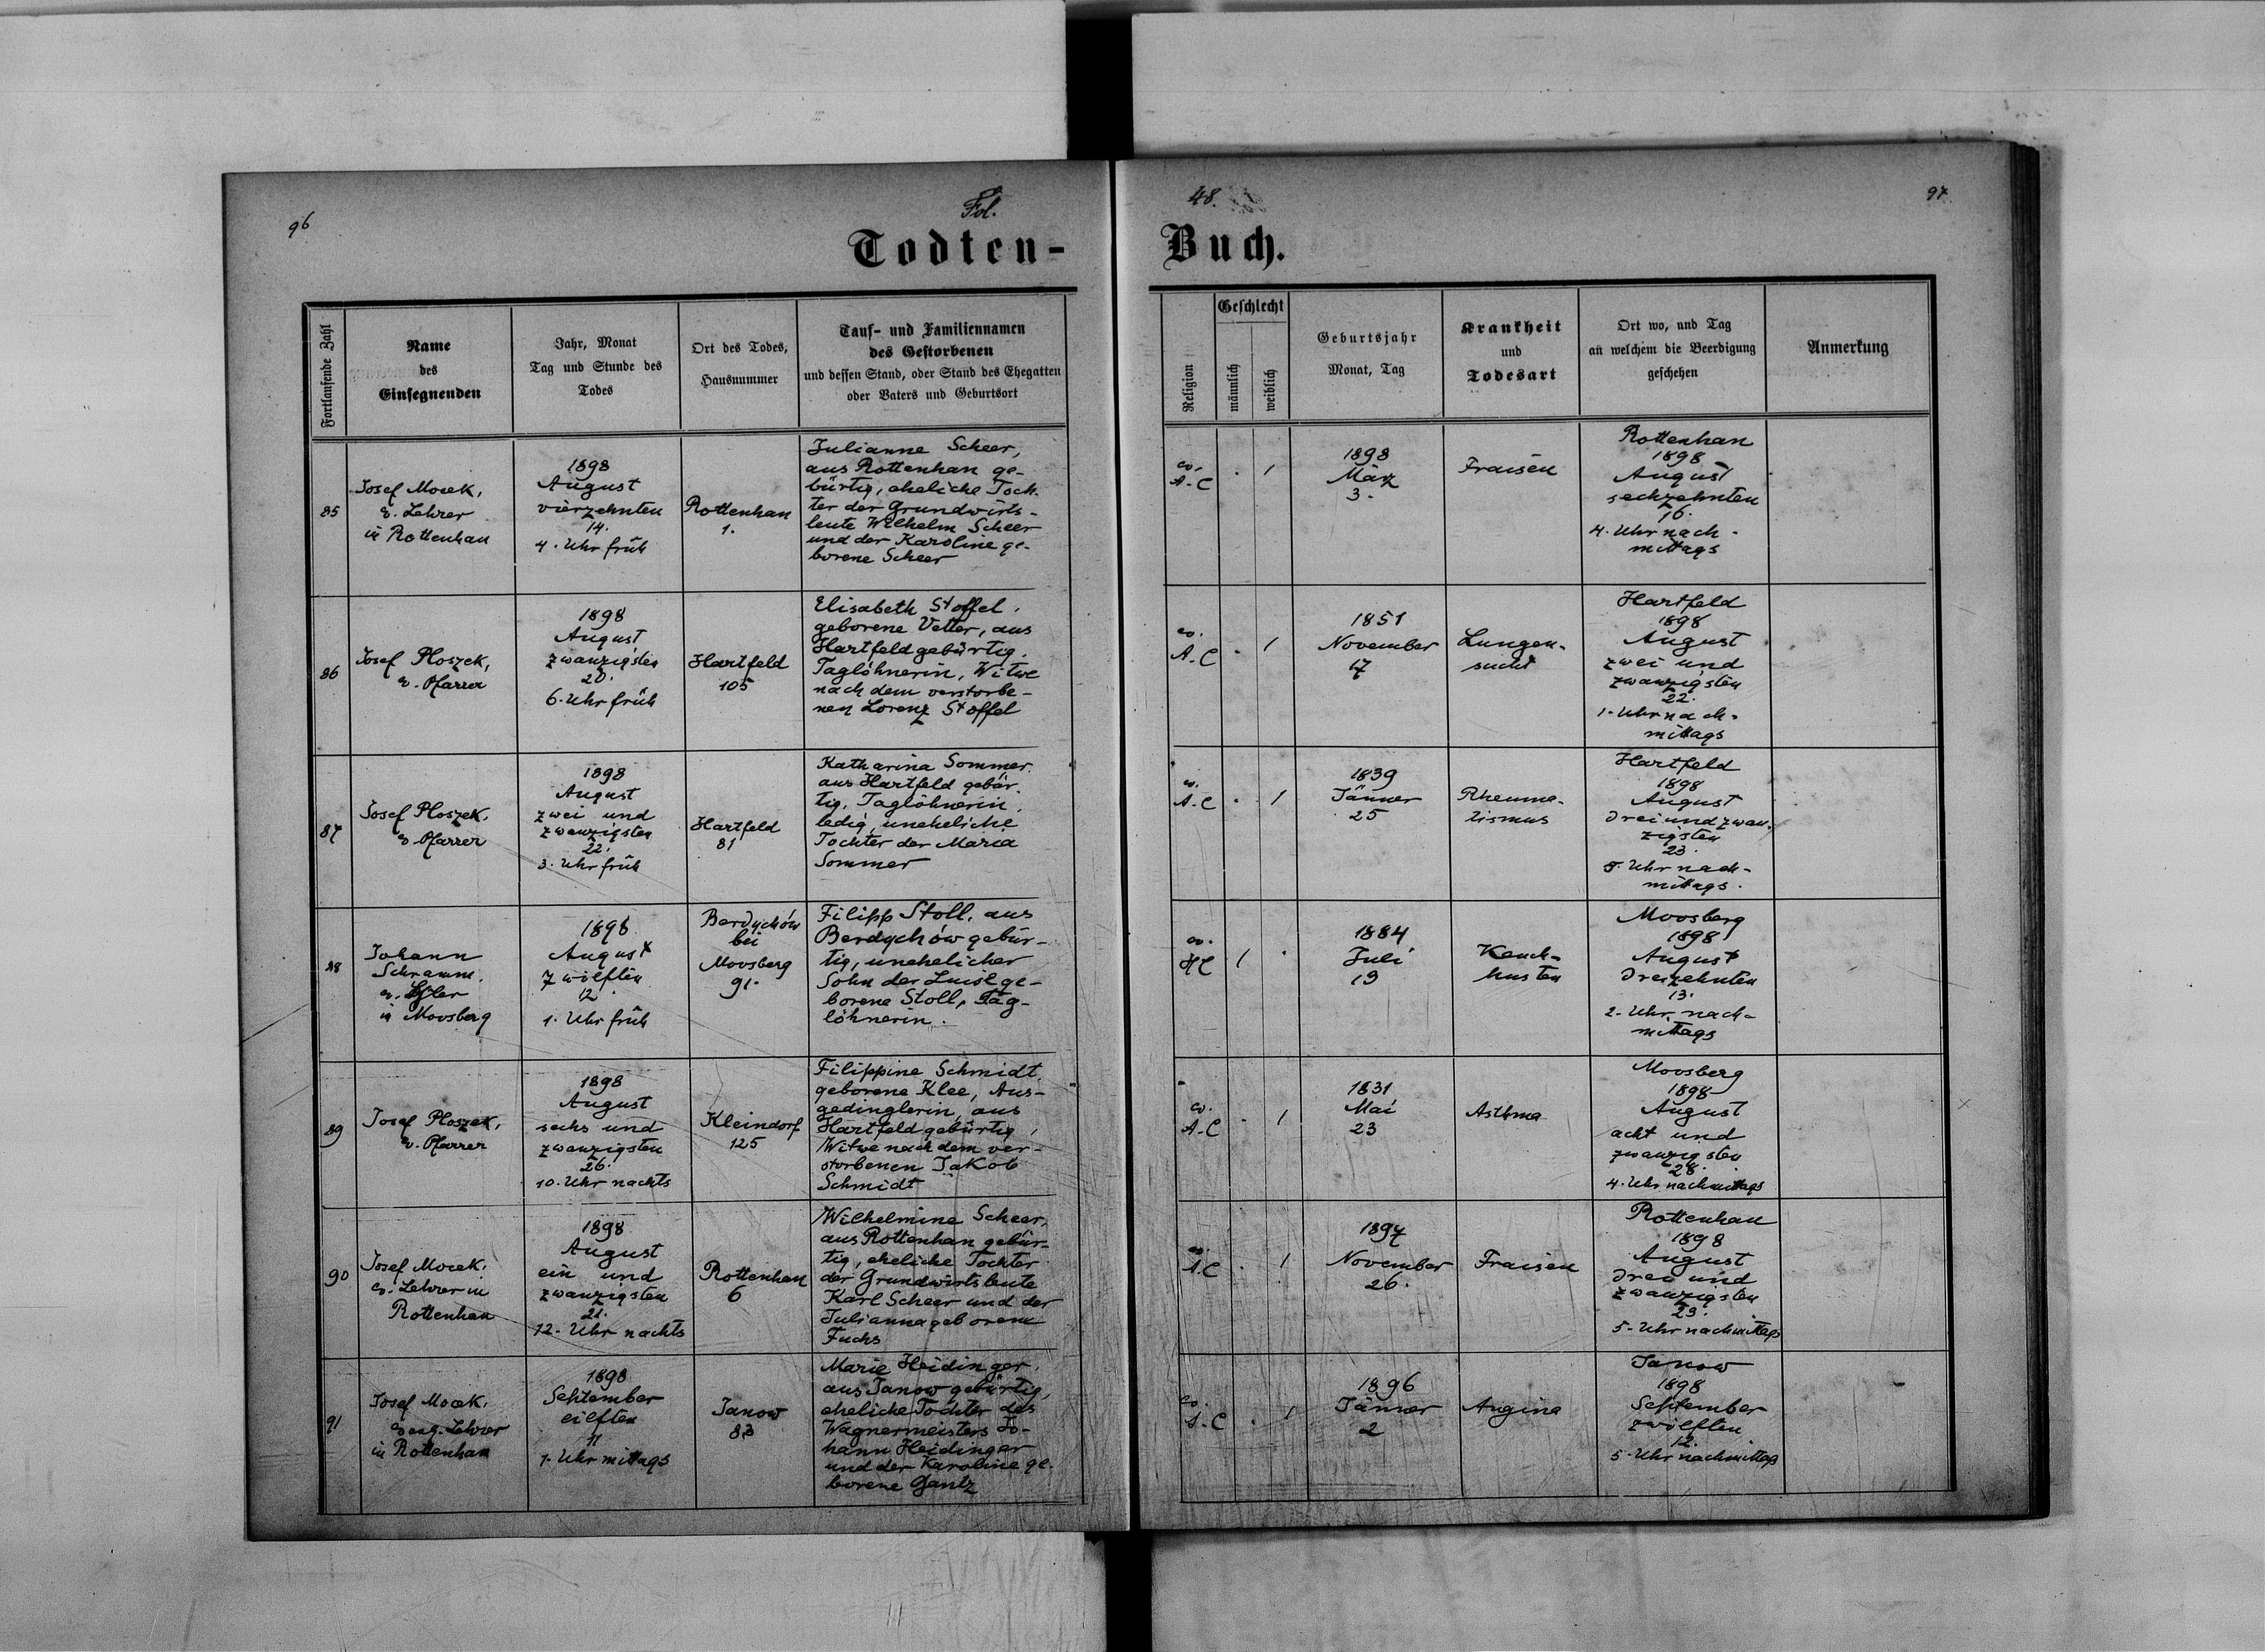 96
Fol.
48.
97
Todten-
Buch.
Fortlaufende Zahl
Name
des
Einsegnenden
Jahr, Monat
Tag und Stunde des
Todes
Ort des Todes,
Hausnummer
Tauf- und Familiennamen
des Gestorbenen
und dessen Stand, oder Stand des Ehegatten
oder Vaters und Geburtsort
Religion
Geschlecht
männlich
weiblich
Geburtsjahr
Monat, Tag
Krankheit
und
Todesart
Ort wo, und Tag
an welchem die Beerdigung
geschehen
Anmerkung
85
Josef Mocek,
ev. Lehrer
in Rottenhan
1898
August
vierzehnten
14.
4. Uhr früh
Rottenhan
1.
Julianne Scheer,
aus Rottenhan ge-
bürtig, eheliche Toch-
ter der Grundwirts-
leute Wilhelm Scheer
und der Karoline ge-
borene Scheer
ev.
A.C
1
1898
März
3.
Fraisen
Rottenhan
1898
August
sechzehnten
16.
4. Uhr nach-
mittags
86
Josef Ploszek,
ev. Pfarrer
1898
August
zwanzigsten
20.
6. Uhr früh
Hartfeld
105
Elisabeth Stoffel,
geborene Vetter, aus
Hartfeld gebürtig,
Taglöhnerin, Witwe
nach dem verstorbe-
nen Lorenz Stoffel
ev.
A.C
1
1851
November
17
Lungen-
sucht
Hartfeld
1898
August
zwei und
zwanzigsten
22.
1. Uhr nach-
mittags
87
Josef Ploszek,
ev. Pfarrer
1898
August
zwei und
zwanzigsten
22.
3. Uhr früh
Hartfeld
81
Katharina Sommer
aus Hartfeld gebür-
tig, Taglöhnerin,
ledig, uneheliche
Tochter der Maria
Sommer
ev.
A.C
1
1839
Jänner
25
Rheuma-
tismus
Hartfeld
1898
August
drei und zwan-
zigsten
23.
Uhr nach-
mittags.
88
Johann
Schramm,
ev.
in Moosberg
1898
August
zwölften
12.
1. Uhr früh
Berdychów
bei
Moosberg
91.
Filipp Stoll, aus
Berdychów gebür-
tig, unehelicher
Sohn der Luise ge-
borene Stoll, Tag-
löhnerin.
ev.
HC
1
1884
Juli
19
Keuch-
husten
Moosberg
1898
August
dreizehnten
13.
2. Uhr nach-
mittags
89
Josef Ploszek,
ev. Pfarrer
1898
August
sechs und
zwanzigsten
26.
10. Uhr nachts
Kleindorf
125
Filippine Schmidt
geborene Klee, Aus-
gedinglerin, aus
Hartfeld gebürtig,
Witwe nach dem ver-
storbenen Jakob
Schmidt
ev.
A.C
1
1831
Mai
23
Asthma
Moosberg
1898
August
acht und
zwanzigsten
28.
4. Uhr nachmittags
90
Josef Mocek,
ev. Lehrer in
Rottenhan
1898
August
ein und
zwanzigsten
21.
12. Uhr nachts
Rottenhan
6
Wilhelmine Scheer,
aus Rottenhan gebür-
tig, eheliche Tochter
der Grundwirtsleute
Karl Scheer und der
Julianna geborene
Fuchs
ev.
A.C
1
1897
November
26.
Fraisen
Rottenhan
1898
August
drei und
zwanzigsten
23.
5. Uhr nachmittags
91
Josef Mocek,
evang. Lehrer
in Rottenhan
1898
September
eilften
11
1. Uhr mittags
Janow
83
Marie Heidinger,
aus Janow gebürtig,
eheliche Tochter des
Wagnermeisters Jo-
hann Heidinger
und der Karoline ge-
borene Gantz
ev.
A.C
1
1896
Jänner
2
Angina
Janow
1898
September
zwölften
12.
5. Uhr nachmittags